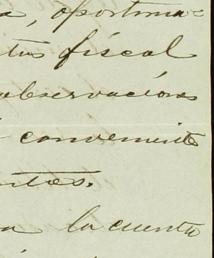 a, oportuna=
tur fiscal
observacións
conveniente
untos.
a la cuenta